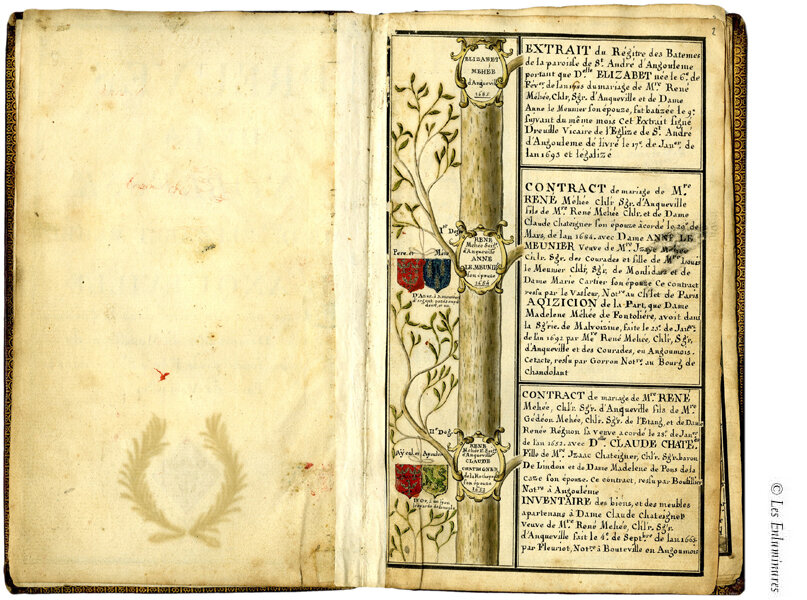 2
ELIZABET
MEHÉE
d'Anqueville
1685
EXTRAIT du Régitre des Batemes
de la paroisse de St. André d'Angouleme
portant que Dlle ELIZABET née le 6e. de
Fevr. de lan 1685 du mariage de Mre. René
Mehée, Chlr, Sgr. d'Anqueville et de Dame
Anne le Meunier son épouze, fut batizée le 9e.
suivant du même mois Cet Extrait signé
Dreuille Vicaire de l'Eglize de St. André
d'Angouleme délivré le 17e. de Janer. de
lan 1693 et légalizé
Ir. Deg.
RENÉ
Mehée Seigr.
d'Anqueville
ANNE
LE MEUNIER
son épouze
1684
Pere. et Mere
CONTRACT de mariage de Mre
RENÉ Méhée Chlr Sgr. d'Anqueville
fils de Mre René Mehée Chlr. et de Dame
Claude Chateigner son épouze acordé le 20e. de
Mars, de lan 1684. avec Dame ANNE LE
MEUNIER veuve de Mre. Izaye Mehée
Chlr. Sgr. des Courades et fille de Mre Louis
le Meunier Chlr, Sgr, de Monsidars et de
Dame Marie Cartier son épouze Ce Contract
ressu par le Vasseur, Notre au Chlet de Paris
AQIZICION de la Part, que Dame
Madelene Méhée de Fontoliére, avoit dans
la Sgrie. de Malvoizine, faite le 23e. de Janer.
de lan 1692 par Mre René Mehée, Chlr, Sgr,
d'Anqueville et des Courades, en Angoumois.
Cet acte, ressu par Gorron Notre. au Bourg de
Chandolant
IIe. Deg.
RENÉ
Mehée II. Seigr.
d'Anqueville
CLAUDE
CHATEIGNER
de la Rocheposay
son épouze
1652
Ayeul et Ayeule
CONTRACT de mariage de Mre. RENÉ
Mehée, Chlr. Sgr. d'Anqueville fils de Mre.
Gédéon Mehée, Chlr. Sgr. de l'Etang, et de Dame
Renée Régnon sa veuve acordé le 28e. de Janer.
de lan 1652. avec Dlle CLAUDE CHATE.
Fille de Mre. Izaac Chateigner, Chlr. Sgr. baron
De Lindois et de Dame Madelene de Pons de la
caze son épouze. Ce contract, ressu par Boutillier
Notre à Angouleme
INVENTAIRE des biens, et des meubles
apartenans à Dame Claude Chateigner
veuve de Mre. René Mehée, Chlr. Sgr.
d'Anqueville fait le 4e. de Septbre. de lan 1664
par Fleuriot, Notre à Bouteville en Angoumois
© Les Enluminures